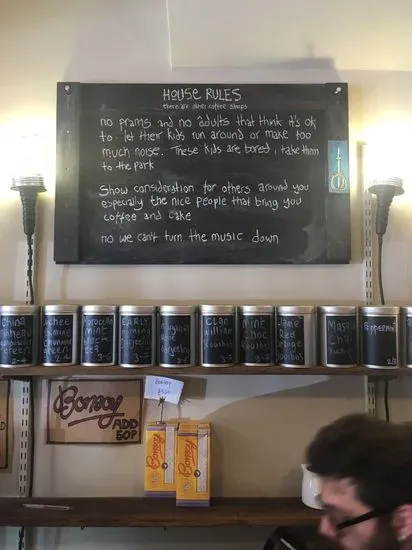 HOUSE RULES
there are other coffee shops
no prams and no adults that think it's ok
to let their kids run around or make too
much noise. These kids are bored, take them
to the park
Show consideration for others around you
especially the nice people that bring you
coffee and cake
no we can't turn the music down
China
green
2-4
Lychee
green
2-4
Moroccan
mint
tea
3-5
EARL
3-7
rose
Clan
william
Rooibos
3-5
Mint
Choc
Rooibos
3-5
Flame
Red
Orange
Rooibos
Masala
Chai
Peppermint
Bonsoy
ADD
50P
Bonsoy
Bonsoy
Bonsoy